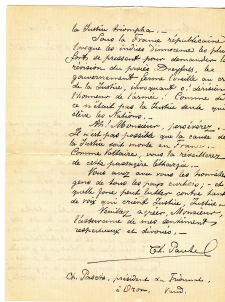 la Justice triompha. —
Sous la France républicaine
lorsque les indices d'innocence les plus
forts se pressent pour demander la
révision du procès Dreyfus, le
gouvernement ferme l'oreille au cri
de la Justice, invoquant o! dérision
l'honneur de l'armée! Comme si
ce n'était pas la Justice seule qui
élève les Nations. —
Ah! Monsieur, persévérez.
Il n'est pas possible que la cause de
la Justice soit morte en France.
Comme Voltaire, vous la réveillerez
de cette passagère léthargie. —
Vous avez avec vous les honnêtes
gens de tous les pays
quelle force peut lutter contre
de voix qui crient Justice, Justice. —
Veuillez agréer, Monsieur,
l'assurance de mes sentiments
respectueux et dévoués.
Ch. Pasche
Ch. Pasche, président du Tribunal
à Oron. Vaud.